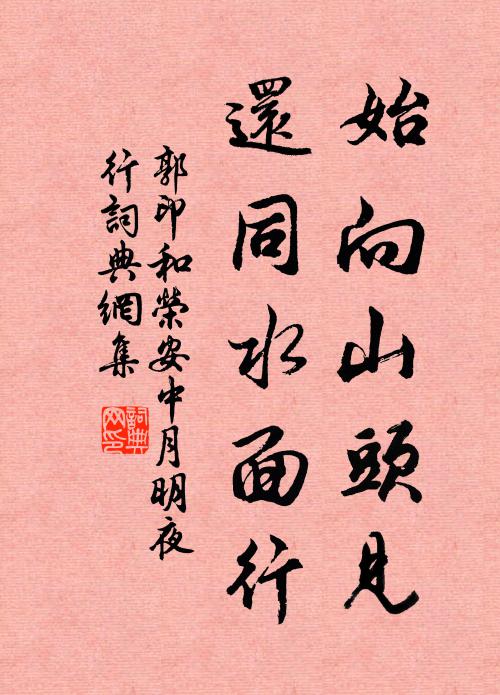 始向山頭見
還同水面行
郭印和榮安中月明夜
行詞典網集
詞典
网印